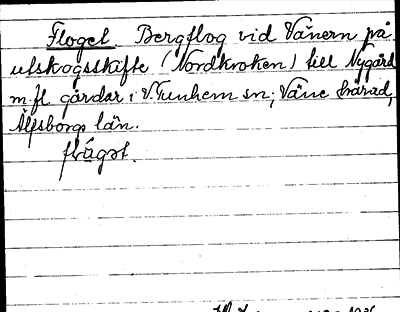 Floget Bergflog vid Vänern på
utskogsskifte (Nordkroken) till Nygård
m.fl. gårdar i V. Tunhem sn; Väne härad,
Älfsborgs län.
flỏgət.